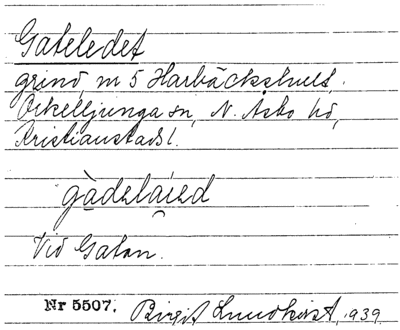 Gateledet
grind, m 5 Harbäckshult.
Örkelljunga sn, N. Åsbo hd,
Kristianstads l.
Vid Gatan.
Nr 5507. Birgit Lundkvist, 1939